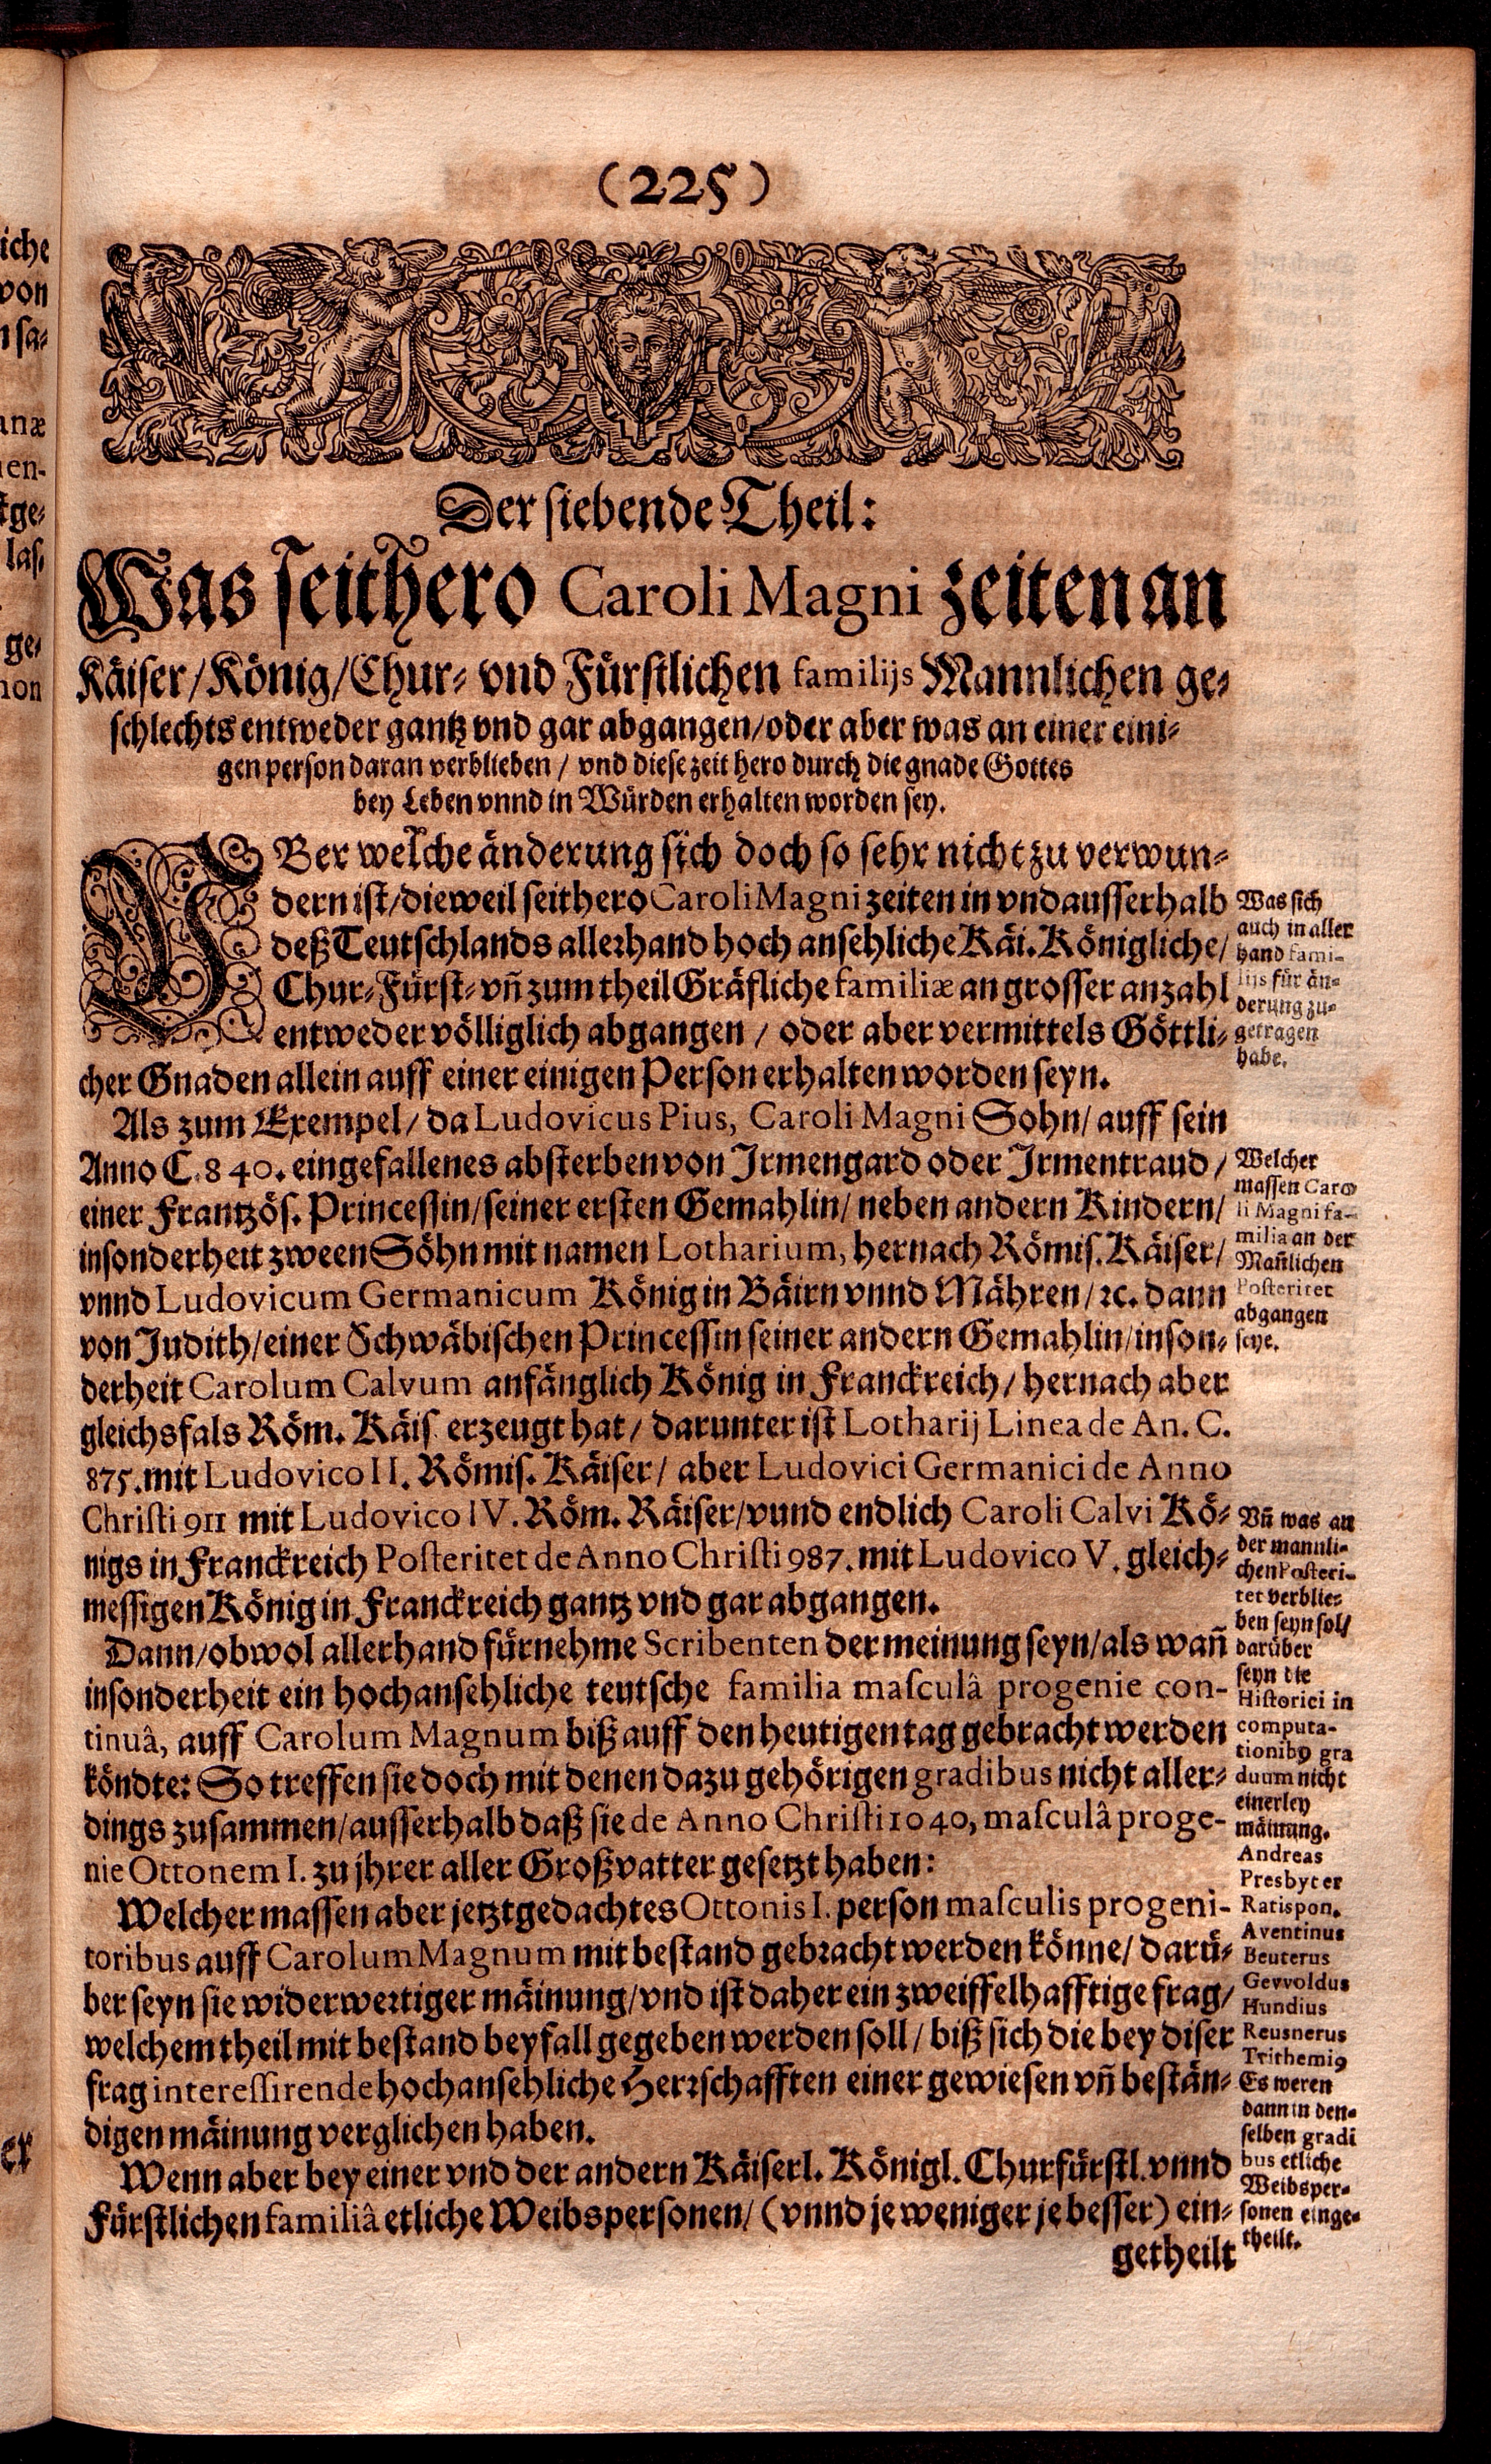 (225)
Der siebende Theil:
Was seithero Caroli Magni zeiten an
Käiser/König/Chur- vnd Fürstlichen familijs Mannlichen ge-
schlechts entweder gantz vnd gar abgangen/oder aber was an einer eini-
gen person daran verblieben / vnd diese zeit hero durch die gnade Gottes
bey Leben vnnd in Würden erhalten worden sey.
VBer welche änderung sich doch so sehr nicht zu verwun-
dern ist/dieweil seithero Caroli Magni zeiten in vnd ausserhalb
deß Teutschlands allerhand hoch ansehliche Käi. Königliche/
Chur-Fürst-vñ zum theil Gräfliche familiæ an grosser anzahl
entweder völliglich abgangen / oder aber vermittels Göttli-
cher Gnaden allein auff einer einigen Person erhalten worden seyn.
Was sich
auch in aller
hand fami-
lijs für än-
derung zu-
getragen
habe.
Als zum Exempel/ da Ludovicus Pius, Caroli Magni Sohn/ auff sein
Anno C. 840. eingefallenes absterben von Irmengard oder Irmentraud /
einer Frantzös. Princessin/seiner ersten Gemahlin/ neben andern Kindern/
insonderheit zween Söhn mit namen Lotharium, hernach Römis. Käiser/
vnnd Ludovicum Germanicum König in Bäirn vnnd Mähren/ ꝛc. dann
von Judith/einer Schwäbischen Princessin seiner andern Gemahlin/inson-
derheit Carolum Calvum anfänglich König in Franckreich/ hernach aber
gleichsfals Röm. Käis. erzeugt hat/ darunter ist Lotharij Linea de An. C.
875. mit Ludovico II. Römis. Käiser/ aber Ludovici Germanici de Anno
Christi 911 mit Ludovico IV. Röm. Räiser/vund endlich Caroli Calvi Kö-
nigs in Franckreich Posteritet de Anno Christi 987. mit Ludovico V. gleich-
messigen König in Franckreich gantz vnd gar abgangen.
Welcher
massen Caro
li Magni fa-
milia an der
Mañlichen
Posteritet
abgangen
seye.
Dann/obwol allerhand fürnehme Scribenten der meinung seyn/als wañ
insonderheit ein hochansehliche teutsche familia masculâ progenie con-
tinuâ, auff Carolum Magnum biß auff den heutigen tag gebracht werden
köndte: So treffen sie doch mit denen dazu gehörigen gradibus nicht aller-
dings zusammen/ausserhalb daß sie de Anno Christi 1040, masculâ proge-
nie Ottonem I. zu jhrer aller Großvatter gesetzt haben:
Welcher massen aber jetztgedachtes Ottonis I. person masculis progeni-
toribus auff Carolum Magnum mit bestand gebracht werden könne/ darü-
ber seyn sie widerwertiger mäinung/vnd ist daher ein zweiffelhafftige frag/
welchem theil mit bestand beyfall gegeben werden soll / biß sich die bey diser
frag interessirende hochansehliche Herrschafften einer gewiesen vñ bestän-
digen mäinung verglichen haben.
Wenn aber bey einer vnd der andern Käiserl. Königl. Churfürstl. vnnd
Fürstlichen familiâ etliche Weibspersonen/ (vnnd je weniger je besser) ein-
getheilt
Vñ was an
der mannli-
chen Posteri-
tet verblie-
ben seyn sol/
darüber
seyn die
Historici in
computa-
tionibꝰ gra
duum nicht
einerley
mäinung.
Andreas
Presbyter
Ratispon.
Aventinus
Beuterus
Gevvoldus
Hundius
Reusnerus
Trithemiꝰ
Es weren
dann in den-
selben gradi
bus etliche
Weibsper-
sonen einge-
theilt.
iche
von
n sa-
anæ
nen-
tge-
las-
ge-
non
er